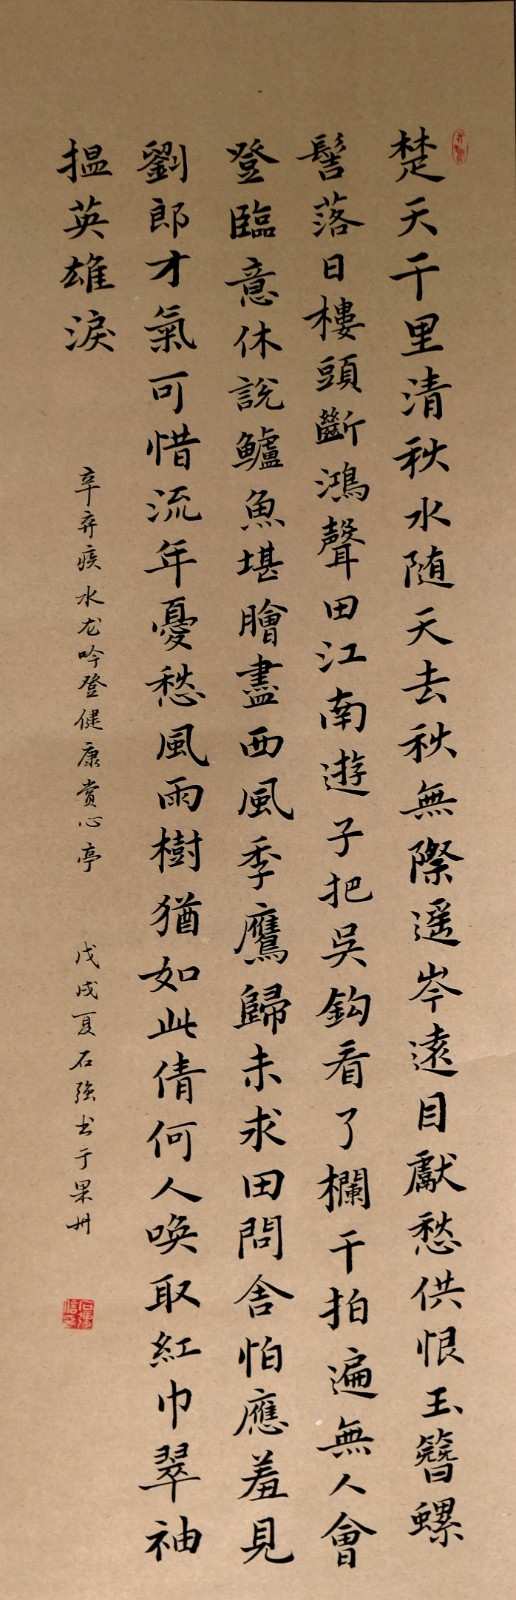 楚天千里清秋水随天去秋無際遥岑遠目獻愁供恨玉簪螺
髻落日樓頭斷鴻聲田江南遊子把吳鈎看了欄干拍遍無人會
登臨意休説鱸魚堪膾盡西風季鷹歸未求田問舍怕應羞見
劉郎才氣可惜流年憂愁風雨樹猶如此倩何人唤取紅巾翠袖
揾英雄淚
辛弃疾水龙吟登健康赏心亭 戊戌夏石强书于果州